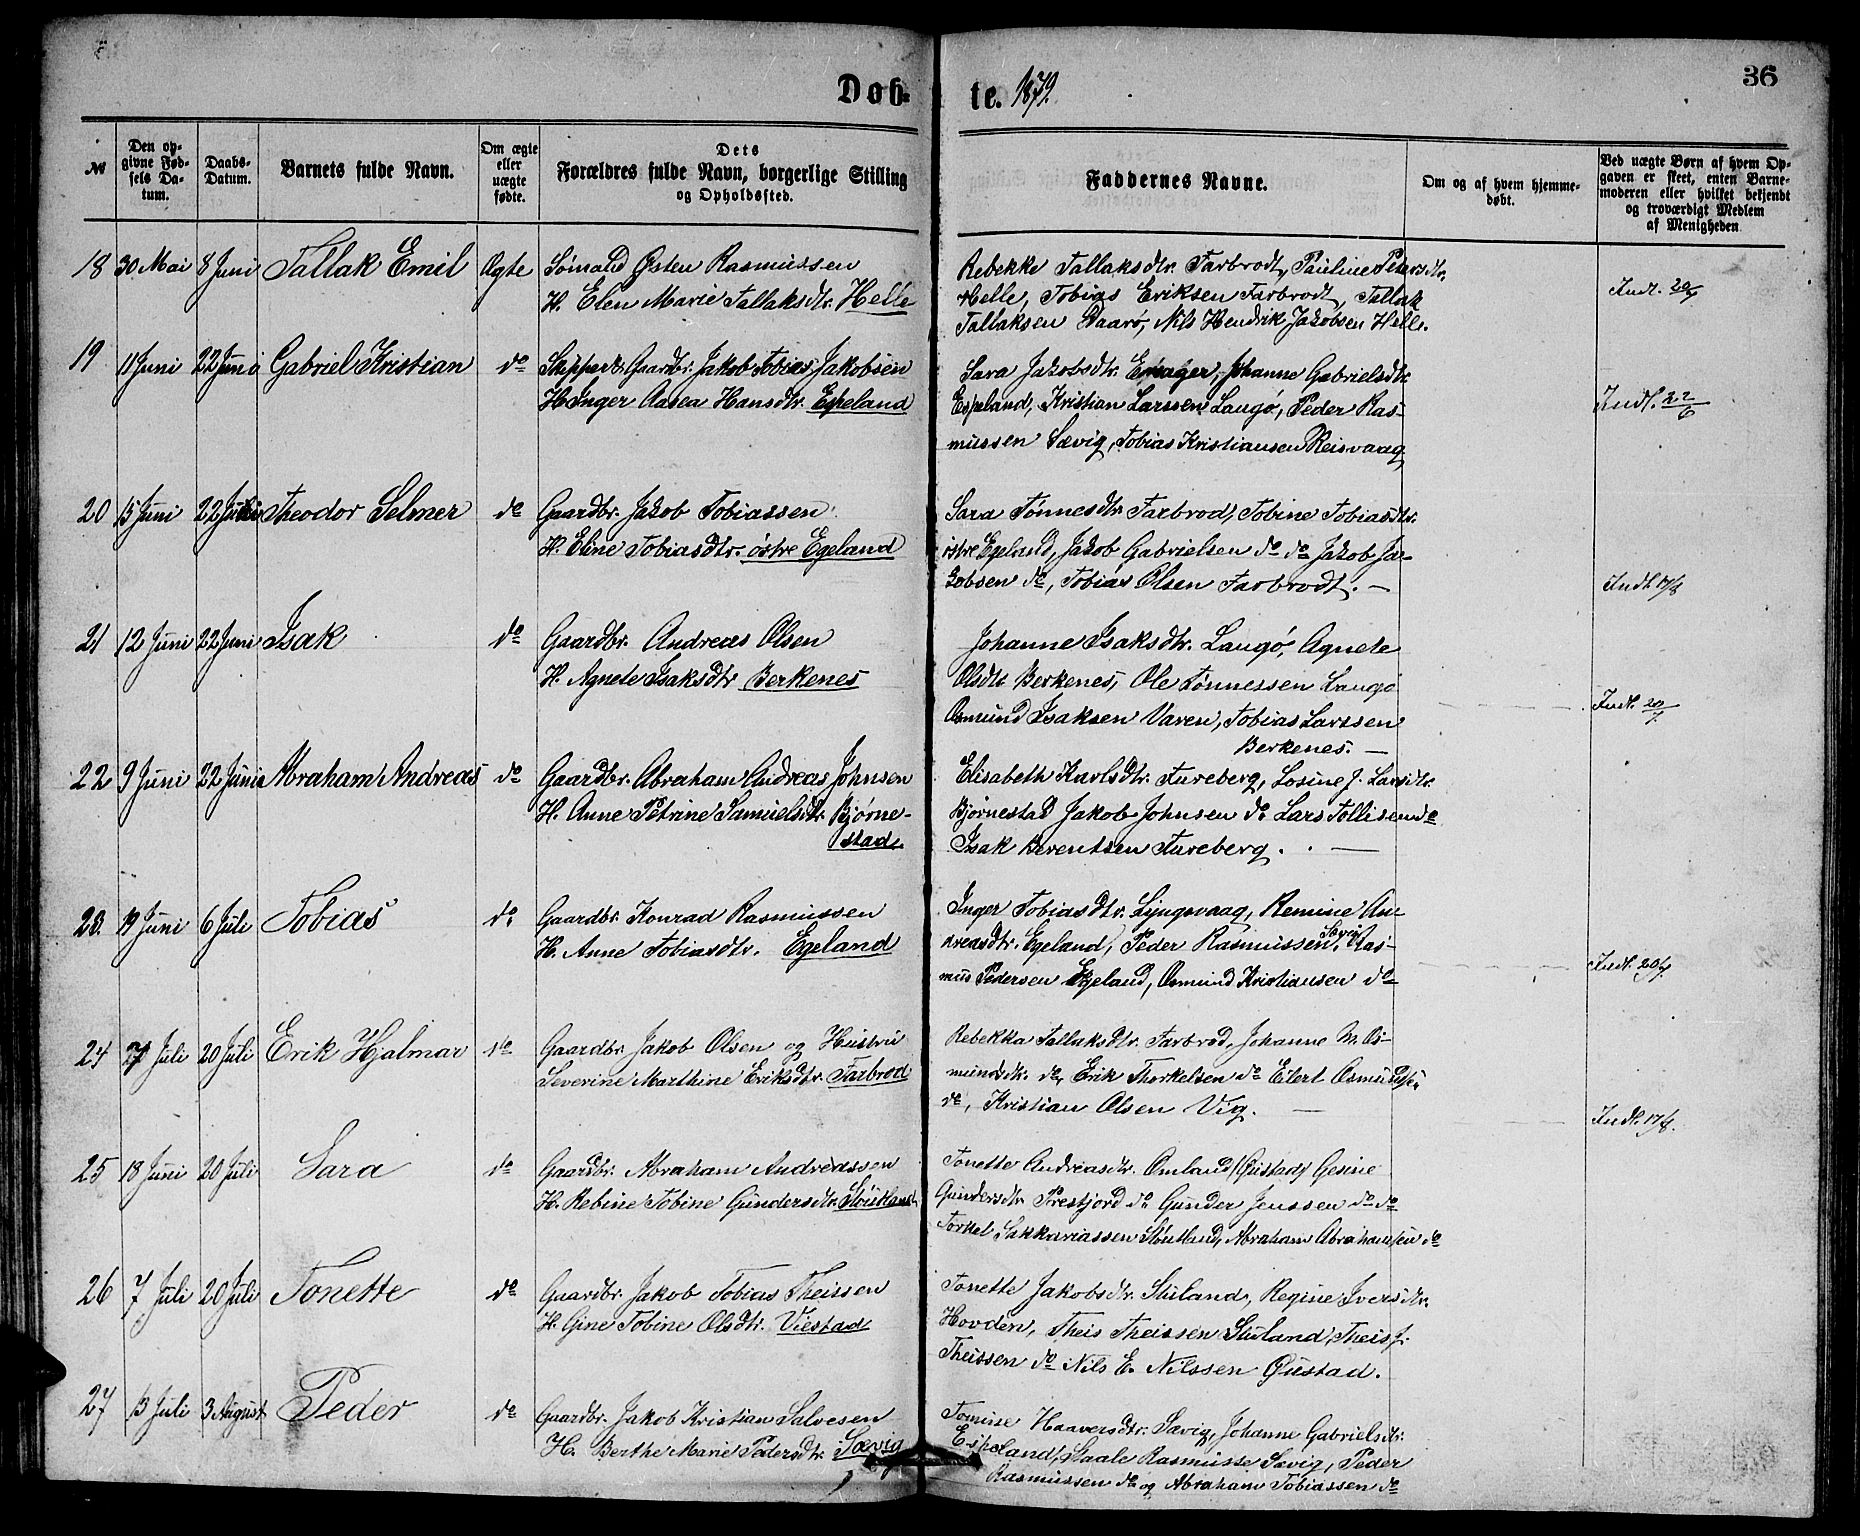 Døb-
te. 1879.
36
№
Den op-
givne Fød-
sels Da-
tum.
Daabs-
Datum.
Barnets fulde Navn.
Om ægte
eller
uægte
fødte.
Dets
Forældres fulde Navn, borgerlige Stilling
og Opholdssted.
Faddernes Navne.
Om og af hvem hjemme-
døbt.
Ved uægte Børn af hvem Op-
gaven er skeet, enten Barne-
moderen eller hvilket bekjendt
og troværdigt Medlem
af Menigheden
18 30 Mai 8 Juni Tallak Emil Ægte Sømand Østen Rasmussen
H. Elen Marie Tallaksdtr. Helle
Rebekke Tallaksdtr. Farbrodt, Pauline Pedersdtr.
Helle, Tobias Eriksen Farbrodt, Tallak
Tallaksen Daarø, Nils Hendrik Jakobsen Helle.
Indl.
19 11 Juni 22 Juni Gabriel Kristian do Skipper & Gaardbr. Jakob Tobias Jakobsen
H. Inger Aasea Hansdtr. Espeland
Sara Jakobsdtr. Johanne Gabrielsdtr.
Espeland, Kristian Larssen Langø, Peder Ras-
mussen Sævig, Tobias Kristiansen Reisvaag
Indl. 22/6
20 15 Juni 22 Theodor Selmer do Gaardbr. Jakob Tobiassen
H. Eline Tobiasdtr. østre Egeland
Sara Tønnesdtr. Farbrod, Tobine Tobiasdtr.
østre Egeland, Jakob Gabrielsen do do Jakob Ja-
kobsen do, Tobias Olsen Farbrodt. —
Indl. 17/8
21 12 Juni 22 Juni Isak do Gaardbr. Andreas Olsen
H. Agnete Isaksdtr. Berkenes
Johanne Isaksdtr. Langø, Agnete
Olsdtr. Berkenes, Ole Tønnessen Langø
Osmund Isaksen Varen, Tobias Larssen
Berkenes. —
Indl. 20/7
22 9 Juni 22 Juni Abraham Andreas do Gaardbr. Abraham Andreas Johnsen
H. Anne Petrine Samuelsdtr. Bjørne-
stad.
Elisabeth Karlsdtr. Fureberg, Losine J. Larsdtr.
Bjørnestad Jakob Johnsen do Lars Tollisen do
Isak Berentsen Fureberg. —
23. 19 Juni 6 Juli Tobias do Gaardbr. Konrad Rasmussen
H. Anne Tobiasdtr. Egeland
Inger Tobiasdtr. Lyngsvaag, Remine An-
dreasdtr. Egeland, Peder Rasmussen Sævig, Ras-
mus Pedersen Egeland, Osmund Kristiansen do
Indl. 20/7.
24 Juli 20 Juli Erik Hjalmar do Gaardbr. Jakob Olsen og Hustru
Severine Marthine Eriksdtr. Farbrod
Rebekka Tallaksdtr. Farbrod, Johanne M. Os-
mundsdtr. do, Erik Thorkelsen do Eilert Osmundsen
do, Kristian Olsen Vig. —
Indl. 17/8.
25 18 Juni 20 Juli Sara do Gaardbr. Abraham Andreassen
H. Rebine Tobine Gundersdtr. Støutland
Tonette Andreasdtr. Omland (Øustad) Gesine
Gundersdtr. Prestjord do Gunder Jenssen do do
Torkel Sakkariassen Støutland, Abraham Abrahamsen do
26 7 Juli 20 Juli Tonette do Gaardbr. Jakob Tobias Theissen
H. Gine Tobine Olsdtr. Viestad
Tonette Jakobsdtr. Stuland, Regine Iversdtr.
Hovden, Theis Theissen Stuland, Theis J.
Theissen do Nils E. Nilssen Øustad.
27 13 Juli 3 August Peder do Gaardbr. Jakob Kristian Salvesen
H. Berthe Marie Pedersdtr. Sævig
Tomine Haaversdtr. Sævig, Johanne Gabrielsdtr.
Espeland, Staale Rasmusse Sævig, Peder
Rasmussen do og Abraham Tobiassen do